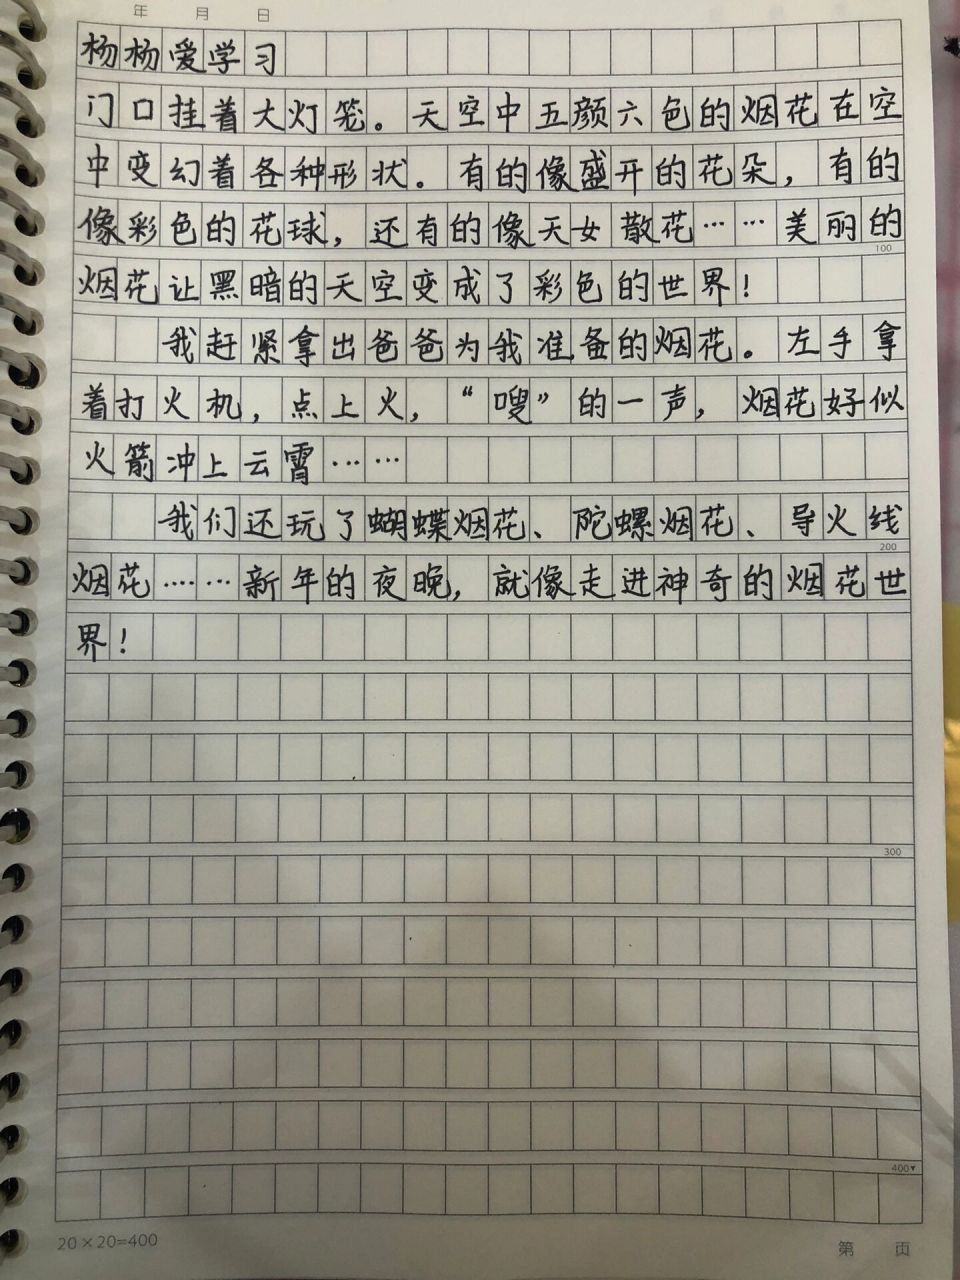 年 月 日
杨杨爱学习
门口挂着大灯笼。天空中五颜六色的烟花在空
中变幻着各种形状。有的像盛开的花朵，有的
像彩色的花球，还有的像天女散花……美丽的
100
烟花让黑暗的天空变成了彩色的世界！
我赶紧拿出爸爸为我准备的烟花。左手拿
着打火机，点上火，“嗖”的一声，烟花好似
火箭冲上云霄……
我们还玩了蝴蝶烟花、陀螺烟花、导火线
200
烟花……新年的夜晚，就像走进神奇的烟花世
界！
300
400▼
20×20=400
第 页